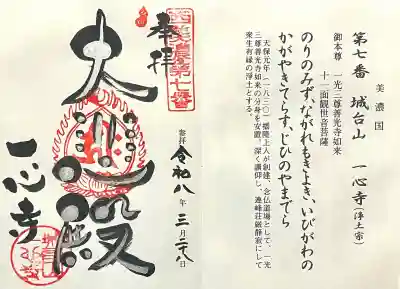 美濃国
第七番 城台山 一心寺(浄土宗)
御本尊 一光三尊善光寺如来
十一面観世音菩薩
のりのみず、ながれもきよき、いびがわの
かがやきてらす、じひのやまでら
天保元年(一八三〇)播隆上人が創建、念仏道場として、一光
三尊善光寺如来の分身を安置、深く讃仰し、連峰荘厳静寂にして
衆生有縁の浄土とする。
西美濃第七番
奉拝
参拝 令和八年三月二十八日
大悲殿
一心寺